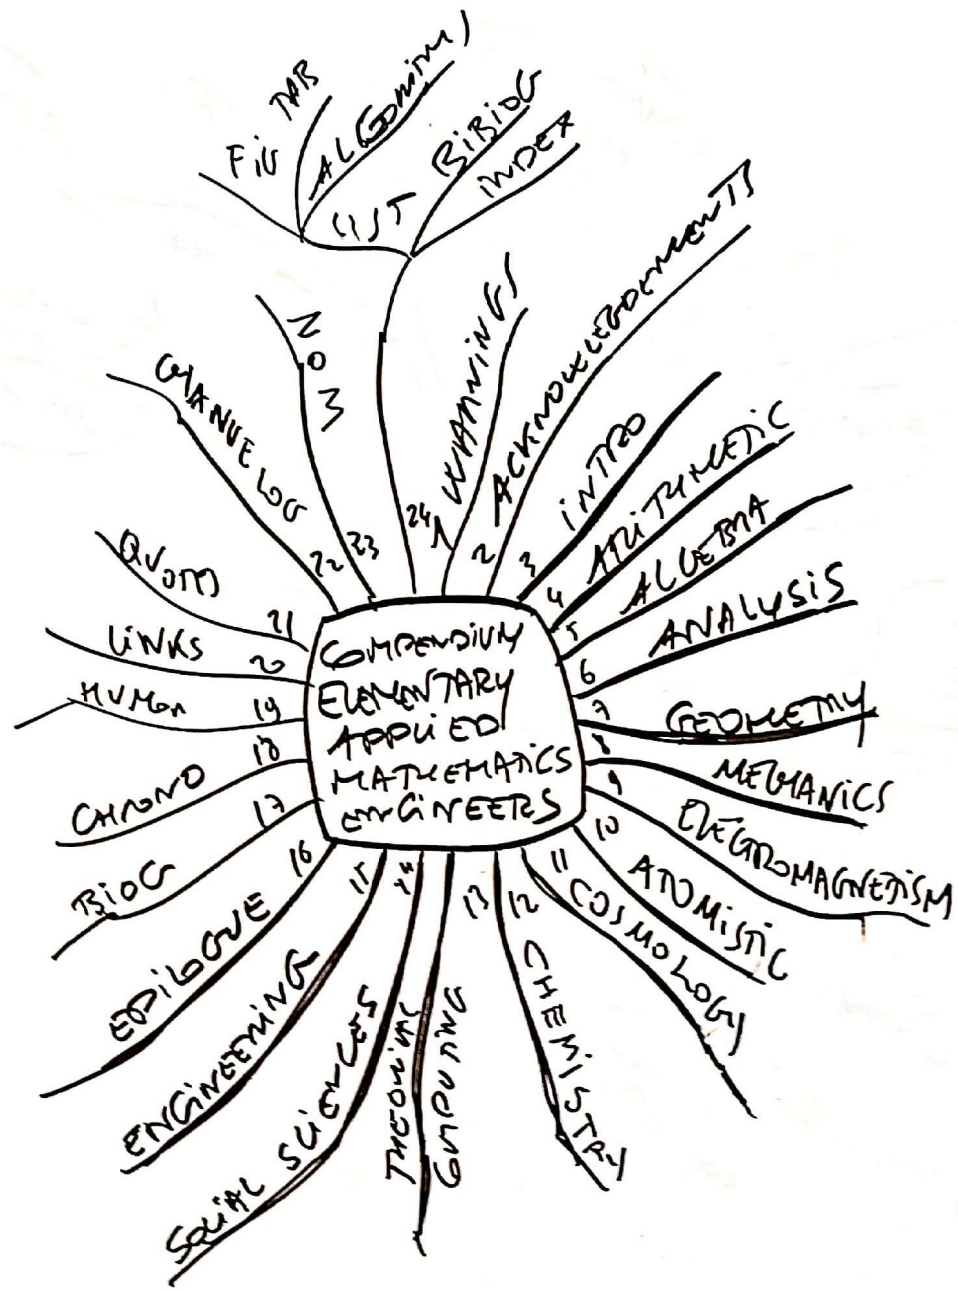 COMPENDIUM
ELEMENTARY
APPLIED
MATHEMATICS
ENGINEERS
1 WARNINGS
2 ACKNOWLEGDEMENTS
3 INTRO
4 ARITHMETIC
5 ALGEBRA
6 ANALYSIS
7 GEOMETRY
8 MECHANICS
9 ELECTROMAGNETISM
10 ATOMISTIC
11 COSMOLOGY
12 CHEMISTRY
13
COMPUTING
14 SOCIAL SCIENCES
15 ENGINEERING
16 EPILOGUE
17 BIOG
18 CHRONO
19 HUMOR
20 LINKS
21
22 CHANGE LOG
23 NOM
24
LIST
FIG
TAB
ALGORITHM
BIBIOG
INDEX